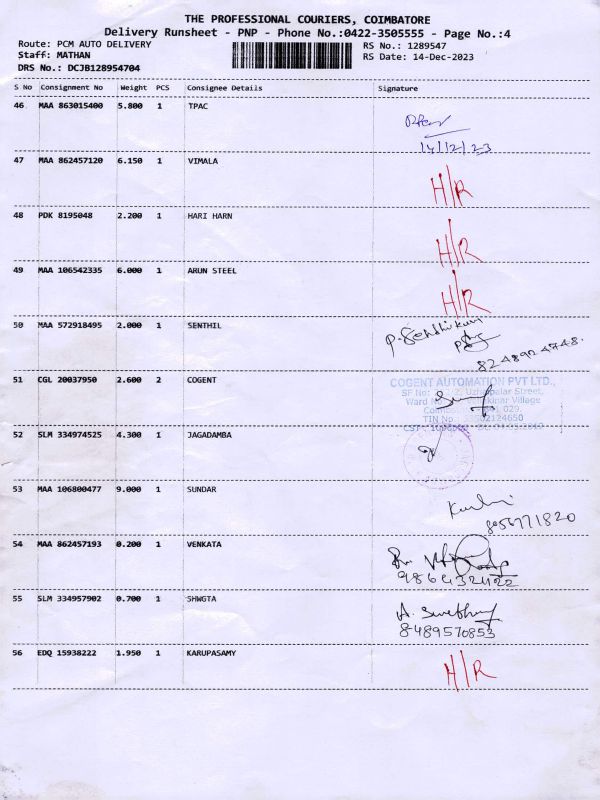 THE PROFESSIONAL COURIERS, COIMBATORE
Delivery Runsheet - PNP - Phone No.:0422-3505555 - Page No.:4
Route: PCM AUTO DELIVERY RS No.: 1289547
Staff: MATHAN RS Date: 14-Dec-2023
DRS No.: DCJB128954704
S No Consignment No Weight PCS Consignee Details Signature
46 MAA 863015400 5.800 1 TPAC
14/12/23
47 MAA 862457120 6.150 1 VIMALA H/R
48 PDK 8195048 2.200 1 HARI HARN H/R
49 MAA 106542335 6.000 1 ARUN STEEL H/R
50 MAA 572918495 2.000 1 SENTHIL
51 CGL 20037950 2.600 2 COGENT
COGENT AUTOMATION PVT LTD.,
SF No: Street,
Ward Village
029.
TIN No
52 SLM 334974525 4.300 1 JAGADAMBA
53 MAA 106800477 9.000 1 SUNDAR
8056771820
54 MAA 862457193 0.200 1 VENKATA
55 SLM 334957902 0.700 1 SHWGTA
8489570853
56 EDQ 15938222 1.950 1 KARUPASAMY H/R